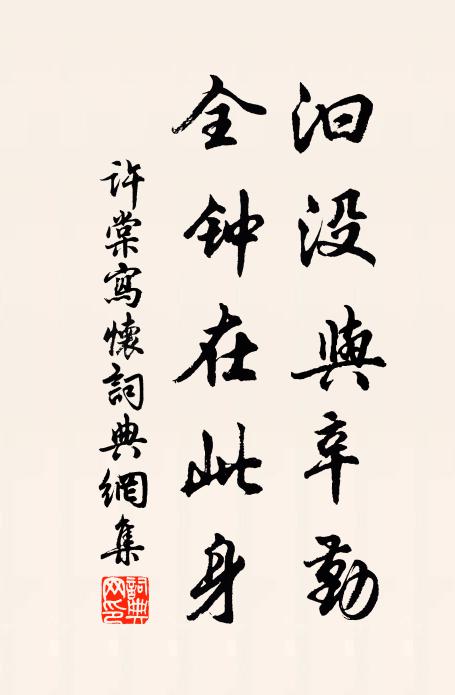 汩没與辛勤
全钟在此身
许棠寫懷詞典網集
詞典網印